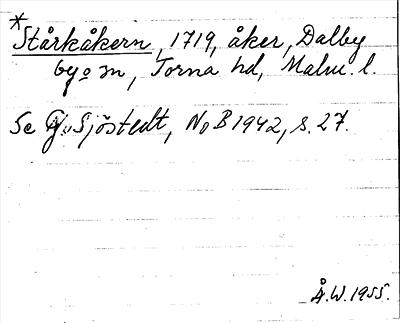 *Stårkåkern, 1719, åker, Dalby
by o sn, Torna hd, Malm. l.
Se G. Sjöstedt, NoB 1942, s. 27.
Å.W. 1955.